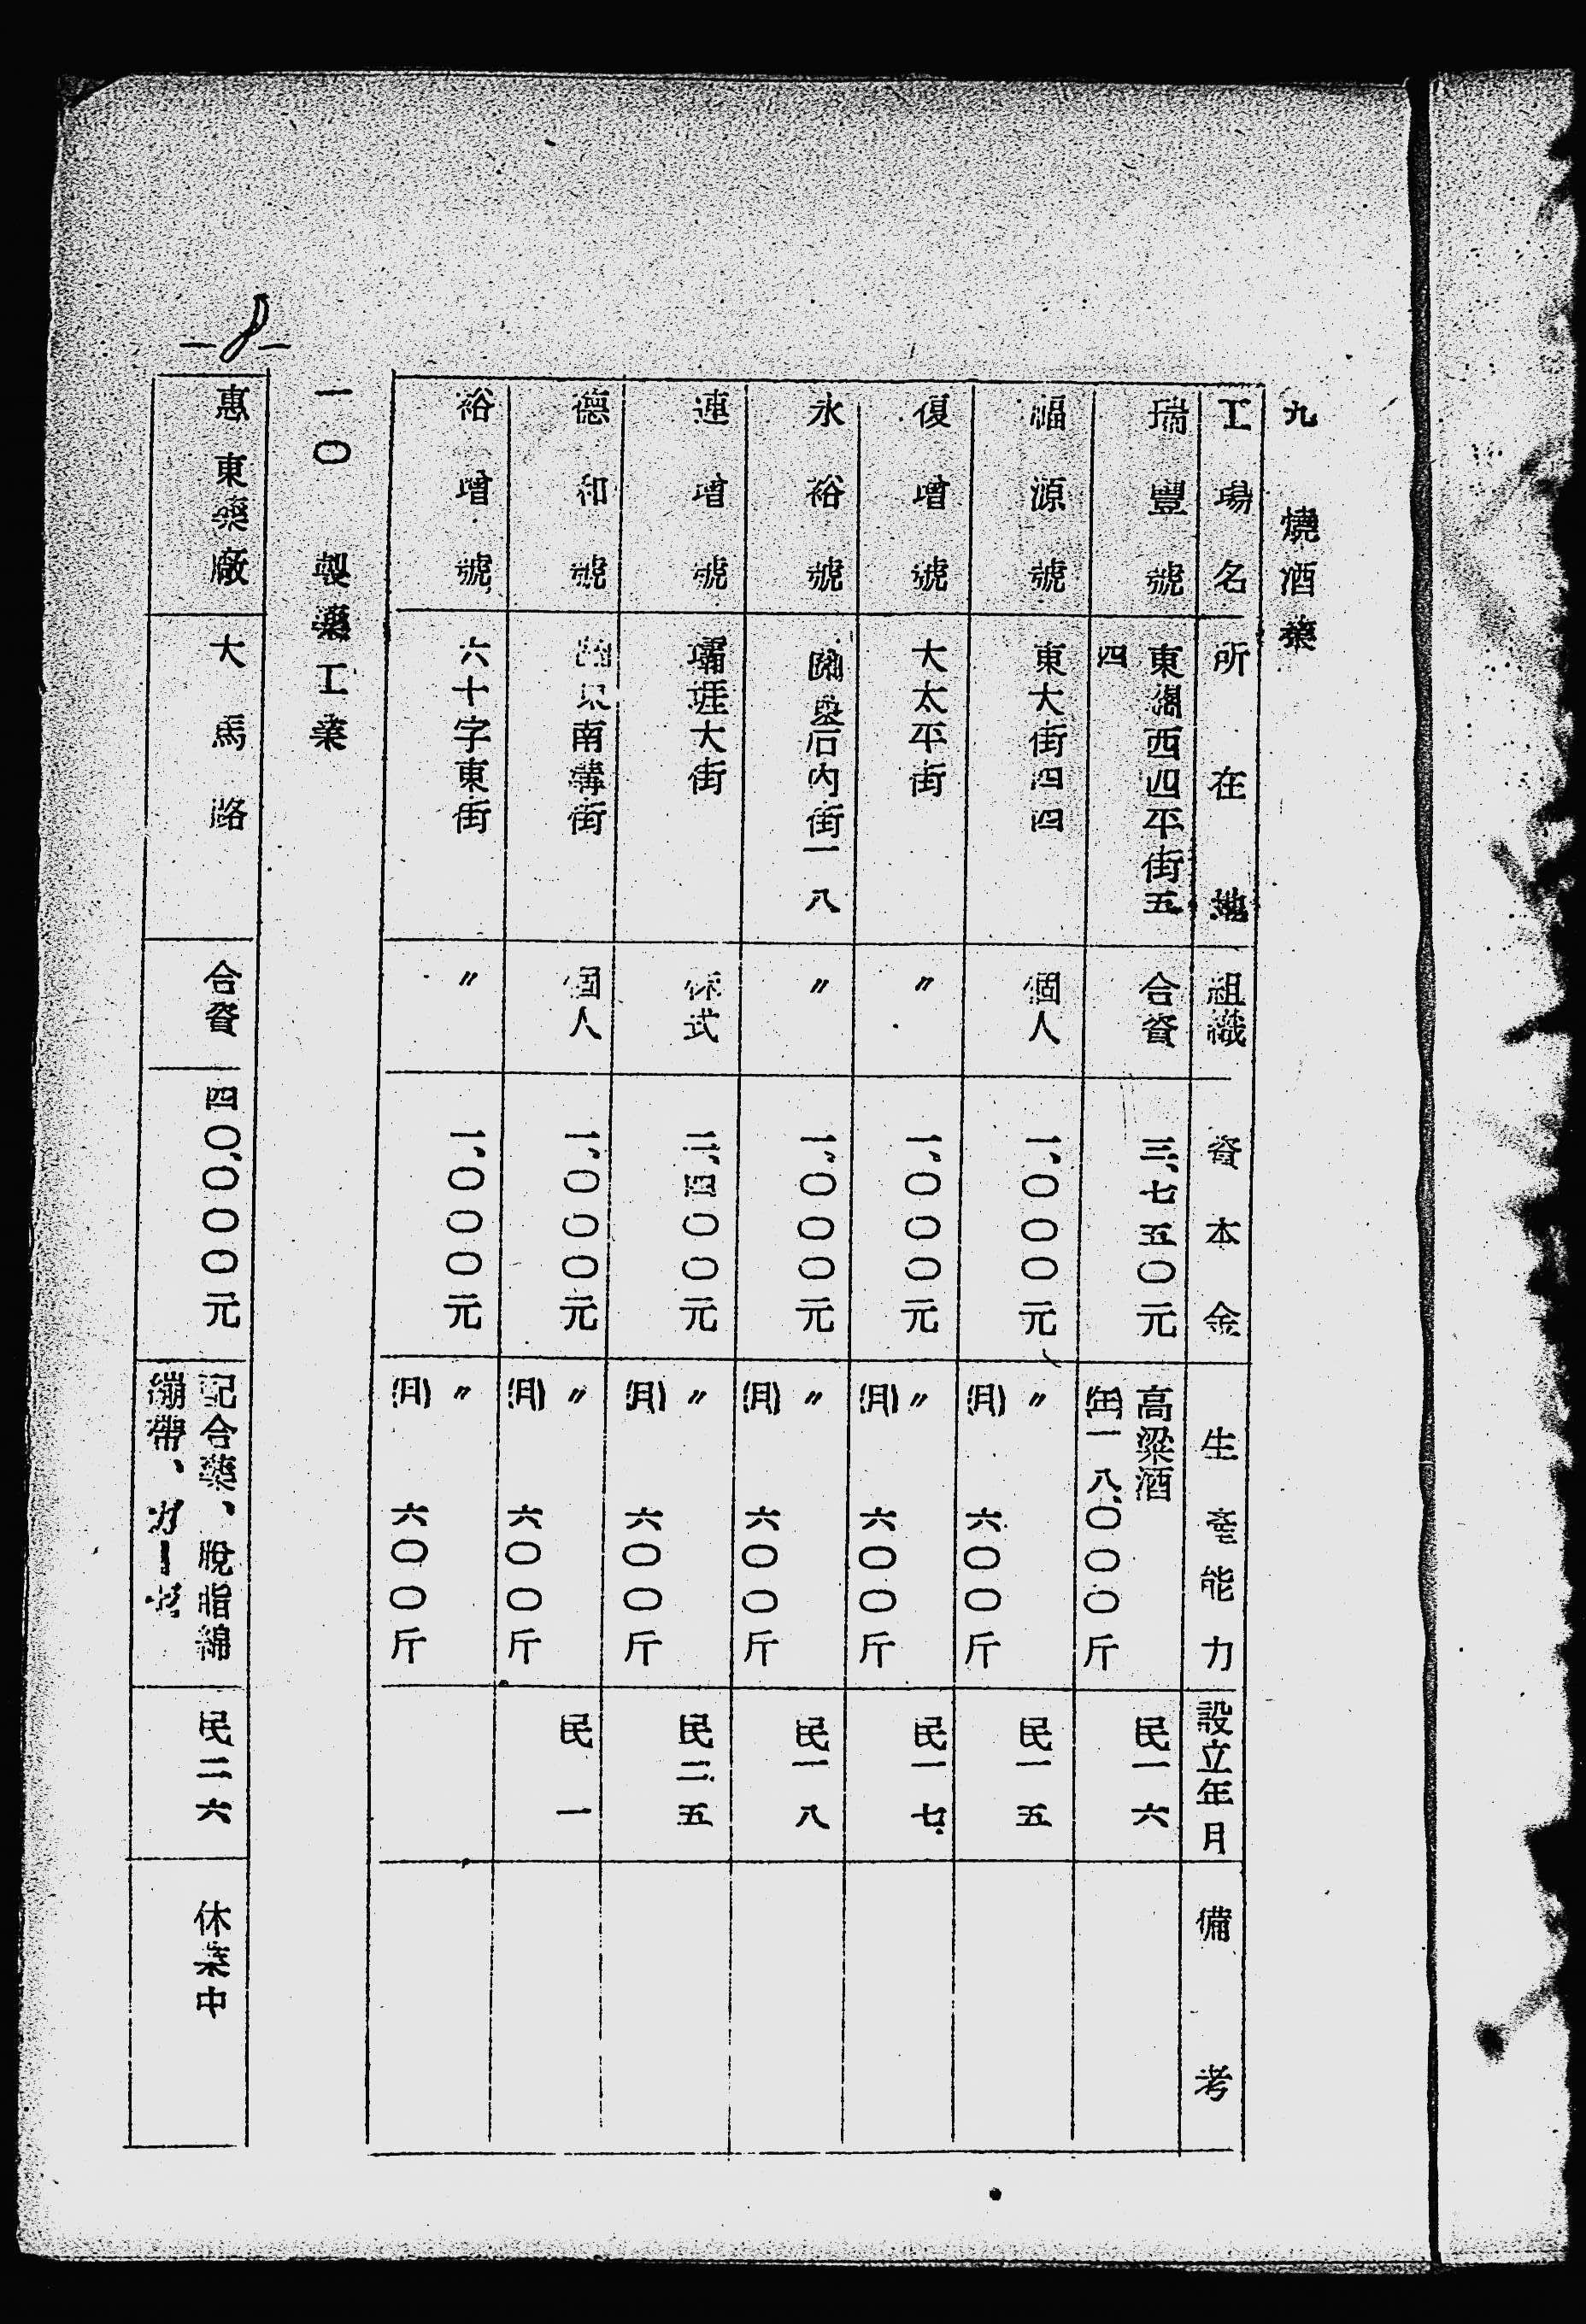 九 燒酒業
工場名 所在地 組織 資本金 生產能力 設立年月 備考
瑞豐號 東關西四平街五四 合資 三、七五〇元 高粱酒 (年)一八、〇〇〇斤 民一六
福源號 東大街四四 個人 一、〇〇〇元 〃 (月) 六〇〇〇斤 民一五
復增號 大太平街 〃 一、〇〇〇元 〃 (月) 六〇〇〇斤 民一七
永裕號 后內街一八 〃 一、〇〇〇元 〃 (月) 六〇〇〇斤 民一八
連增號 大街 株式 二、四〇〇元 〃 (月) 六〇〇〇斤 民二五
德和號 南溝街 個人 一、〇〇〇元 〃 (月) 六〇〇〇斤 民一
裕增號 六十字東街 〃 一、〇〇〇元 〃 (月) 六〇〇〇斤
一〇 製藥工業
惠東藥廠 大馬路 合資 四〇、〇〇〇元 配合藥、脫脂綿繃帶、ガーゼ 民二六 休業中